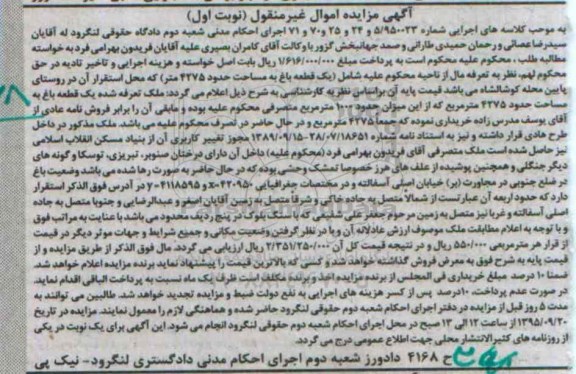 آگهی مزایده اموال غیرمنقول (نوبت اول)
به موجب کلاسه های اجرایی شماره ۵/۹۵۰۰۲۳ و ۲۴ و ۲۵ و ۷۰ و ۷۱ اجرای احکام مدنی شعبه دوم دادگاه حقوقی لنگرود له آقایان
سیدرضا عصائی و رحمان حمیدی طارانی و صمد جهانبخش گزور با وکالت آقای کامران بصیری علیه آقایان فریدون بهرامی فرد به خواسته
مطالبه طلب ، محکوم علیه محکوم است به پرداخت مبلغ ۱/۶۱۶/۰۰۰/۰۰۰ ریال بابت اصل خواسته و هزینه اجرایی و تاخیر تادیه در حق
محکوم لهم، نظر به تعرفه مال از ناحیه محکوم علیه شامل (یک قطعه باغ به مساحت حدود ۴۲۷۵ متر) که محل استقرار آن در روستای
پایین محله کوشالشاه می باشد قیمت پایه آن براساس نظریه کارشناسی به شرح ذیل اعلام می گردد: ملک تعرفه شده یک قطعه باغ به
مساحت حدود ۴۲۷۵ مترمربع که از این میزان حدود ۱۰۰۰ مترمربع متصرفی محکوم علیه بوده و مابقی آن را برابر فروش نامه عادی از
آقای یوسف مدرس زاده خریداری نموده که جمعا ۴۲۷۵ مترمربع و در حال حاضر در تصرف محکوم علیه می باشد. ملک مذکور در داخل
طرح هادی قرار داشته و نیز به استناد نامه شماره ۲۸/۰۷/۱۸۶۵۱-۱۳۸۹/۰۹/۱۵ مجوز تغییر کاربری آن از بنیاد مسکن انقلاب اسلامی
نیز حاصل شده است ملک متصرفی آقای فریدون بهرامی فرد (محکوم علیه) داخل آن دارای درختان صنوبر، تبریزی، توسکا و گونه های
دیگر جنگلی و همچنین پوشیده از علف های هرز خصوصا تمشک وحشی بوده که در حال حاضر به صورت رها شده می باشد وضعیت باغ
در ضلع جنوبی در مجاورت (بر) خیابان اصلی آسفالته و در مختصات جغرافیایی x-۴۲۰۹۵۰ و y-۴۱۱۸۵۹۵ در آدرس فوق الذکر استقرار
دارد که حدود اربعه آن عبارتست از شمالا متصل به جاده خاکی و شرقا متصل به زمین آقایان اصغر و عبدالرضایی و جنوبا متصل به جاده
اصلی آسفالته و غربا نیز متصل به زمین مرحوم جعفر علی عقیلی که با سنگ بلوک در پنج ردیف محدود می باشد با عنایت به مراتب فوق
و با توجه به اعلام مطابقت ملک موصوف ارزش عادلانه آن و با در نظر گرفتن وضعیت مکانی و جمیع شرایط و جهات موثر دیگر در قیمت
از قرار هر مترمربعی ۵۵۰/۰۰۰ ریال و در نتیجه قیمت کل آن ۲/۳۵۱/۲۵۰/۰۰۰ ریال ارزیابی می گردد. مال فوق الذکر از طریق مزایده و از
قیمت پایه به شرح فوق به معرض فروش گذاشته خواهد شد و کسی که بالاترین قیمت را پیشنهاد نماید برنده مزایده اعلام خواهد شد.
ضمنا ۱۰ درصد مبلغ خریداری فی المجلس از برنده مزایده اخذ و برنده مکلف است ظرف یک ماه نسبت به پرداخت الباقی اقدام نمایند
در صورت عدم پرداخت، ۱۰درصد پس از کسر هزینه های اجرایی به نفع دولت ضبط و مزایده تجدید خواهد شد. طالبین می توانند به
مدت ۵ روز قبل از مزایده در دفتر اجرای احکام شعبه دوم حقوقی لنگرود حاضر شده و هماهنگی لازم را معمول نمایند. مزایده در تاریخ
۱۳۹۵/۰۹/۲۰ از ساعت ۱۲ الی ۱۳ صبح در محل اجرای احکام شعبه دوم حقوقی لنگرود انجام می شود. این آگهی برای یک نوبت در یکی
از روزنامه های کثیرالانتشار محلی جهت اطلاع عمومی درج می گردد.
ح ۴۱۶۸ دادورز شعبه دوم اجرای احکام مدنی دادگستری لنگرود - نیک پی